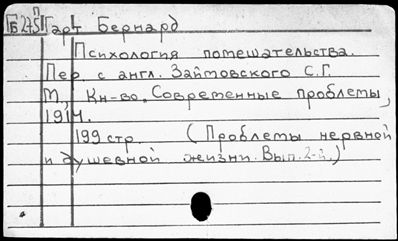 Б245 П Гарт Бернард
Психология помешательства.
Пер. с англ. Займовского С.Г.
М., Кн-во „Современные проблемы“,
1914.
199 стр. (Проблемы нервной
и душевной жизни. Вып. 2-й.)